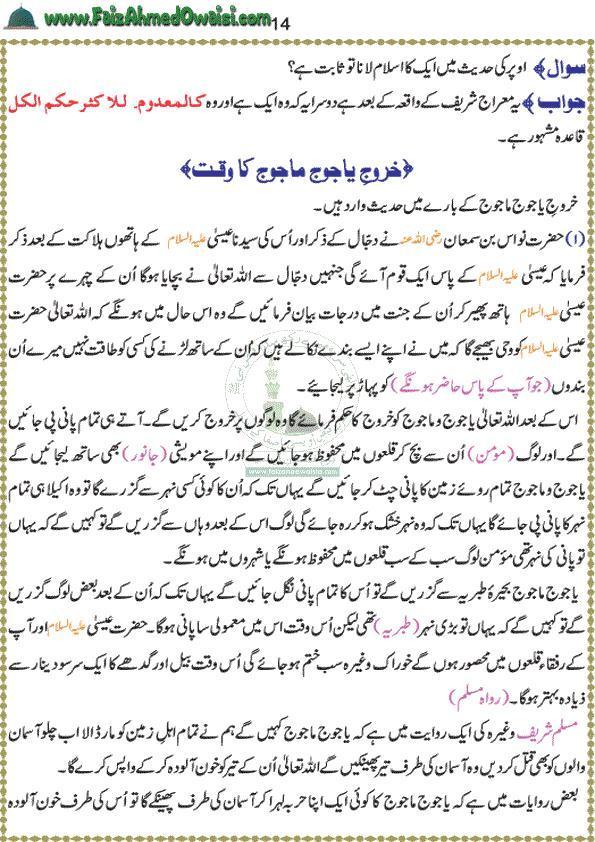 www.FaizAhmedOwaisi.com
14
سوال﴾ اوپر کی حدیث میں ایک کا اسلام لانا تو ثابت ہے؟
جواب﴾ یہ معراج شریف کے واقعہ کے بعد ہے دوسرا یہ کہ وہ ایک ہے اور وہ کالمعدوم۔ للاکثر حکم الکل
قاعدہ مشہور ہے۔
﴿خروجِ یاجوج ماجوج کا وقت﴾
خروجِ یاجوج ماجوج کے بارے میں حدیث وارد ہیں۔
(۱) حضرت نواس بن سمعان رضی اللہ عنہ نے دجّال کے ذکر اور اُس کی سیدنا عیسیٰ علیہ السلام کے ہاتھوں ہلاکت کے بعد ذکر
فرمایا کہ عیسیٰ علیہ السلام کے پاس ایک قوم آئے گی جنہیں دجّال سے اللہ تعالیٰ نے بچایا ہوگا اُن کے چہرے پر حضرت
عیسیٰ علیہ السلام ہاتھ پھیر کر اُن کے جنت میں درجات بیان فرمائیں گے وہ اس حال میں ہونگے کہ اللہ تعالیٰ حضرت
عیسیٰ علیہ السلام کو وحی بھیجے گا کہ میں نے اپنے ایسے بندے نکالے ہیں کہ اُن کے ساتھ لڑنے کی کسی کو طاقت نہیں میرے اُن
بندوں (جو آپ کے پاس حاضر ہونگے) کو پہاڑ پر لیجائیے۔
اس کے بعد اللہ تعالیٰ یاجوج و ماجوج کو خروج کا حکم فرمائے گا وہ لوگوں پر خروج کریں گے۔ آتے ہی تمام پانی پی جائیں
گے۔ اور لوگ (مؤمن) اُن سے بچ کر قلعوں میں محفوظ ہو جائیں گے اور اپنے مویشی (جانور) بھی ساتھ لیجائیں گے
www.faizahmedowaisi.com
یاجوج و ماجوج تمام روئے زمین کا پانی چٹ کر جائیں گے یہاں تک کہ اُن کا کوئی کسی نہر سے گزرے گا تو وہ اکیلا ہی تمام
نہر کا پانی پی جائے گا یہاں تک کہ وہ نہر خشک ہو کر رہ جائے گی لوگ اس کے بعد وہاں سے گزریں گے تو کہیں گے کہ یہاں
تو پانی کی نہر تھی مؤمن لوگ سب کے سب قلعوں میں محفوظ ہونگے یا شہروں میں ہونگے۔
یاجوج ماجوج بحیرۂ طبریہ سے گزریں گے تو اُس کا تمام پانی نگل جائیں گے یہاں تک کہ اُن کے بعد بعض لوگ گزریں
گے تو کہیں گے کہ یہاں تو بڑی نہر (طبریہ) تھی لیکن اُس وقت اس میں معمولی سا پانی ہوگا۔ حضرت عیسیٰ علیہ السلام اور آپ
کے رفقاء قلعوں میں محصور ہوں گے خوراک وغیرہ سب ختم ہو جائے گی اُس وقت بیل اور گدھے کا ایک سر سو دینار سے
زیادہ بہتر ہوگا۔ (رواہ مسلم)
مسلم شریف وغیرہ کی ایک روایت میں ہے کہ یاجوج ماجوج کہیں گے ہم نے تمام اہلِ زمین کو مار ڈالا اب چلو آسمان
والوں کو بھی قتل کر دیں وہ آسمان کی طرف تیر پھینکیں گے اللہ تعالیٰ اُن کے تیر کو خون آلودہ کر کے واپس کرے گا۔
بعض روایات میں ہے کہ یاجوج ماجوج کا کوئی ایک اپنا حربہ لہرا کر آسمان کی طرف پھینکے گا تو اُس کی طرف خون آلودہ